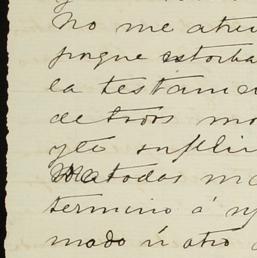 No me atre
porque estorba
la testame
de todos mo
yte suplic
de todas ma
termino á n
modo ú otro